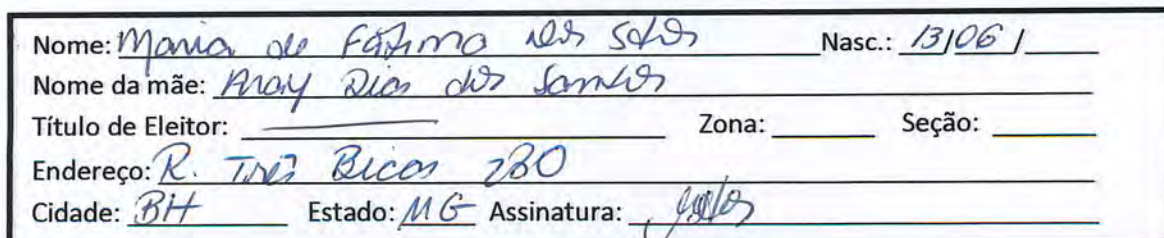 Nome: Maria de Fátima dos Stos Nasc.: 13/06/
Nome da mãe: Aray Dias dos Santos
Título de Eleitor: Zona: Seção:
Endereço: R. Três Bicos 280
Cidade: BH Estado: MG Assinatura: